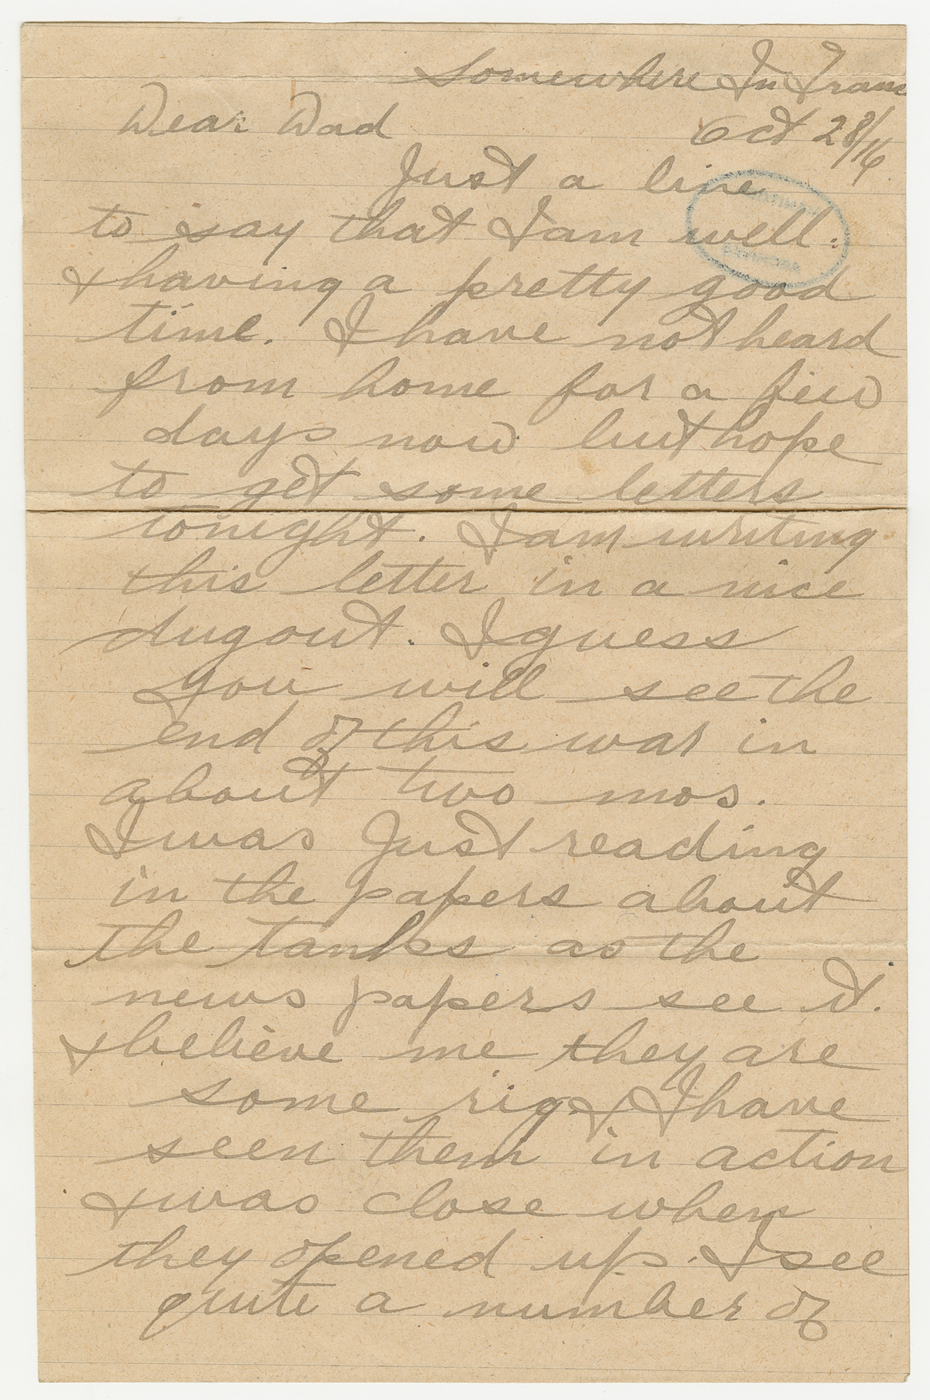 Somewhere In Franc
Dear Dad Oct 28/16
Just a line
to say that I am well
& having a pretty good
time. I have not heard
from home for a few
days now but hope
to get some letters
tonight. I am writing
this letter in a nice
dugout. I guess
you will see the
end of this war in
about two mos.
I was Just reading
in the papers about
the tanks as the
news papers see it.
& believe me they are
some rig & I have
seen them in action
& was close when
they opened up. I see
quite a number of